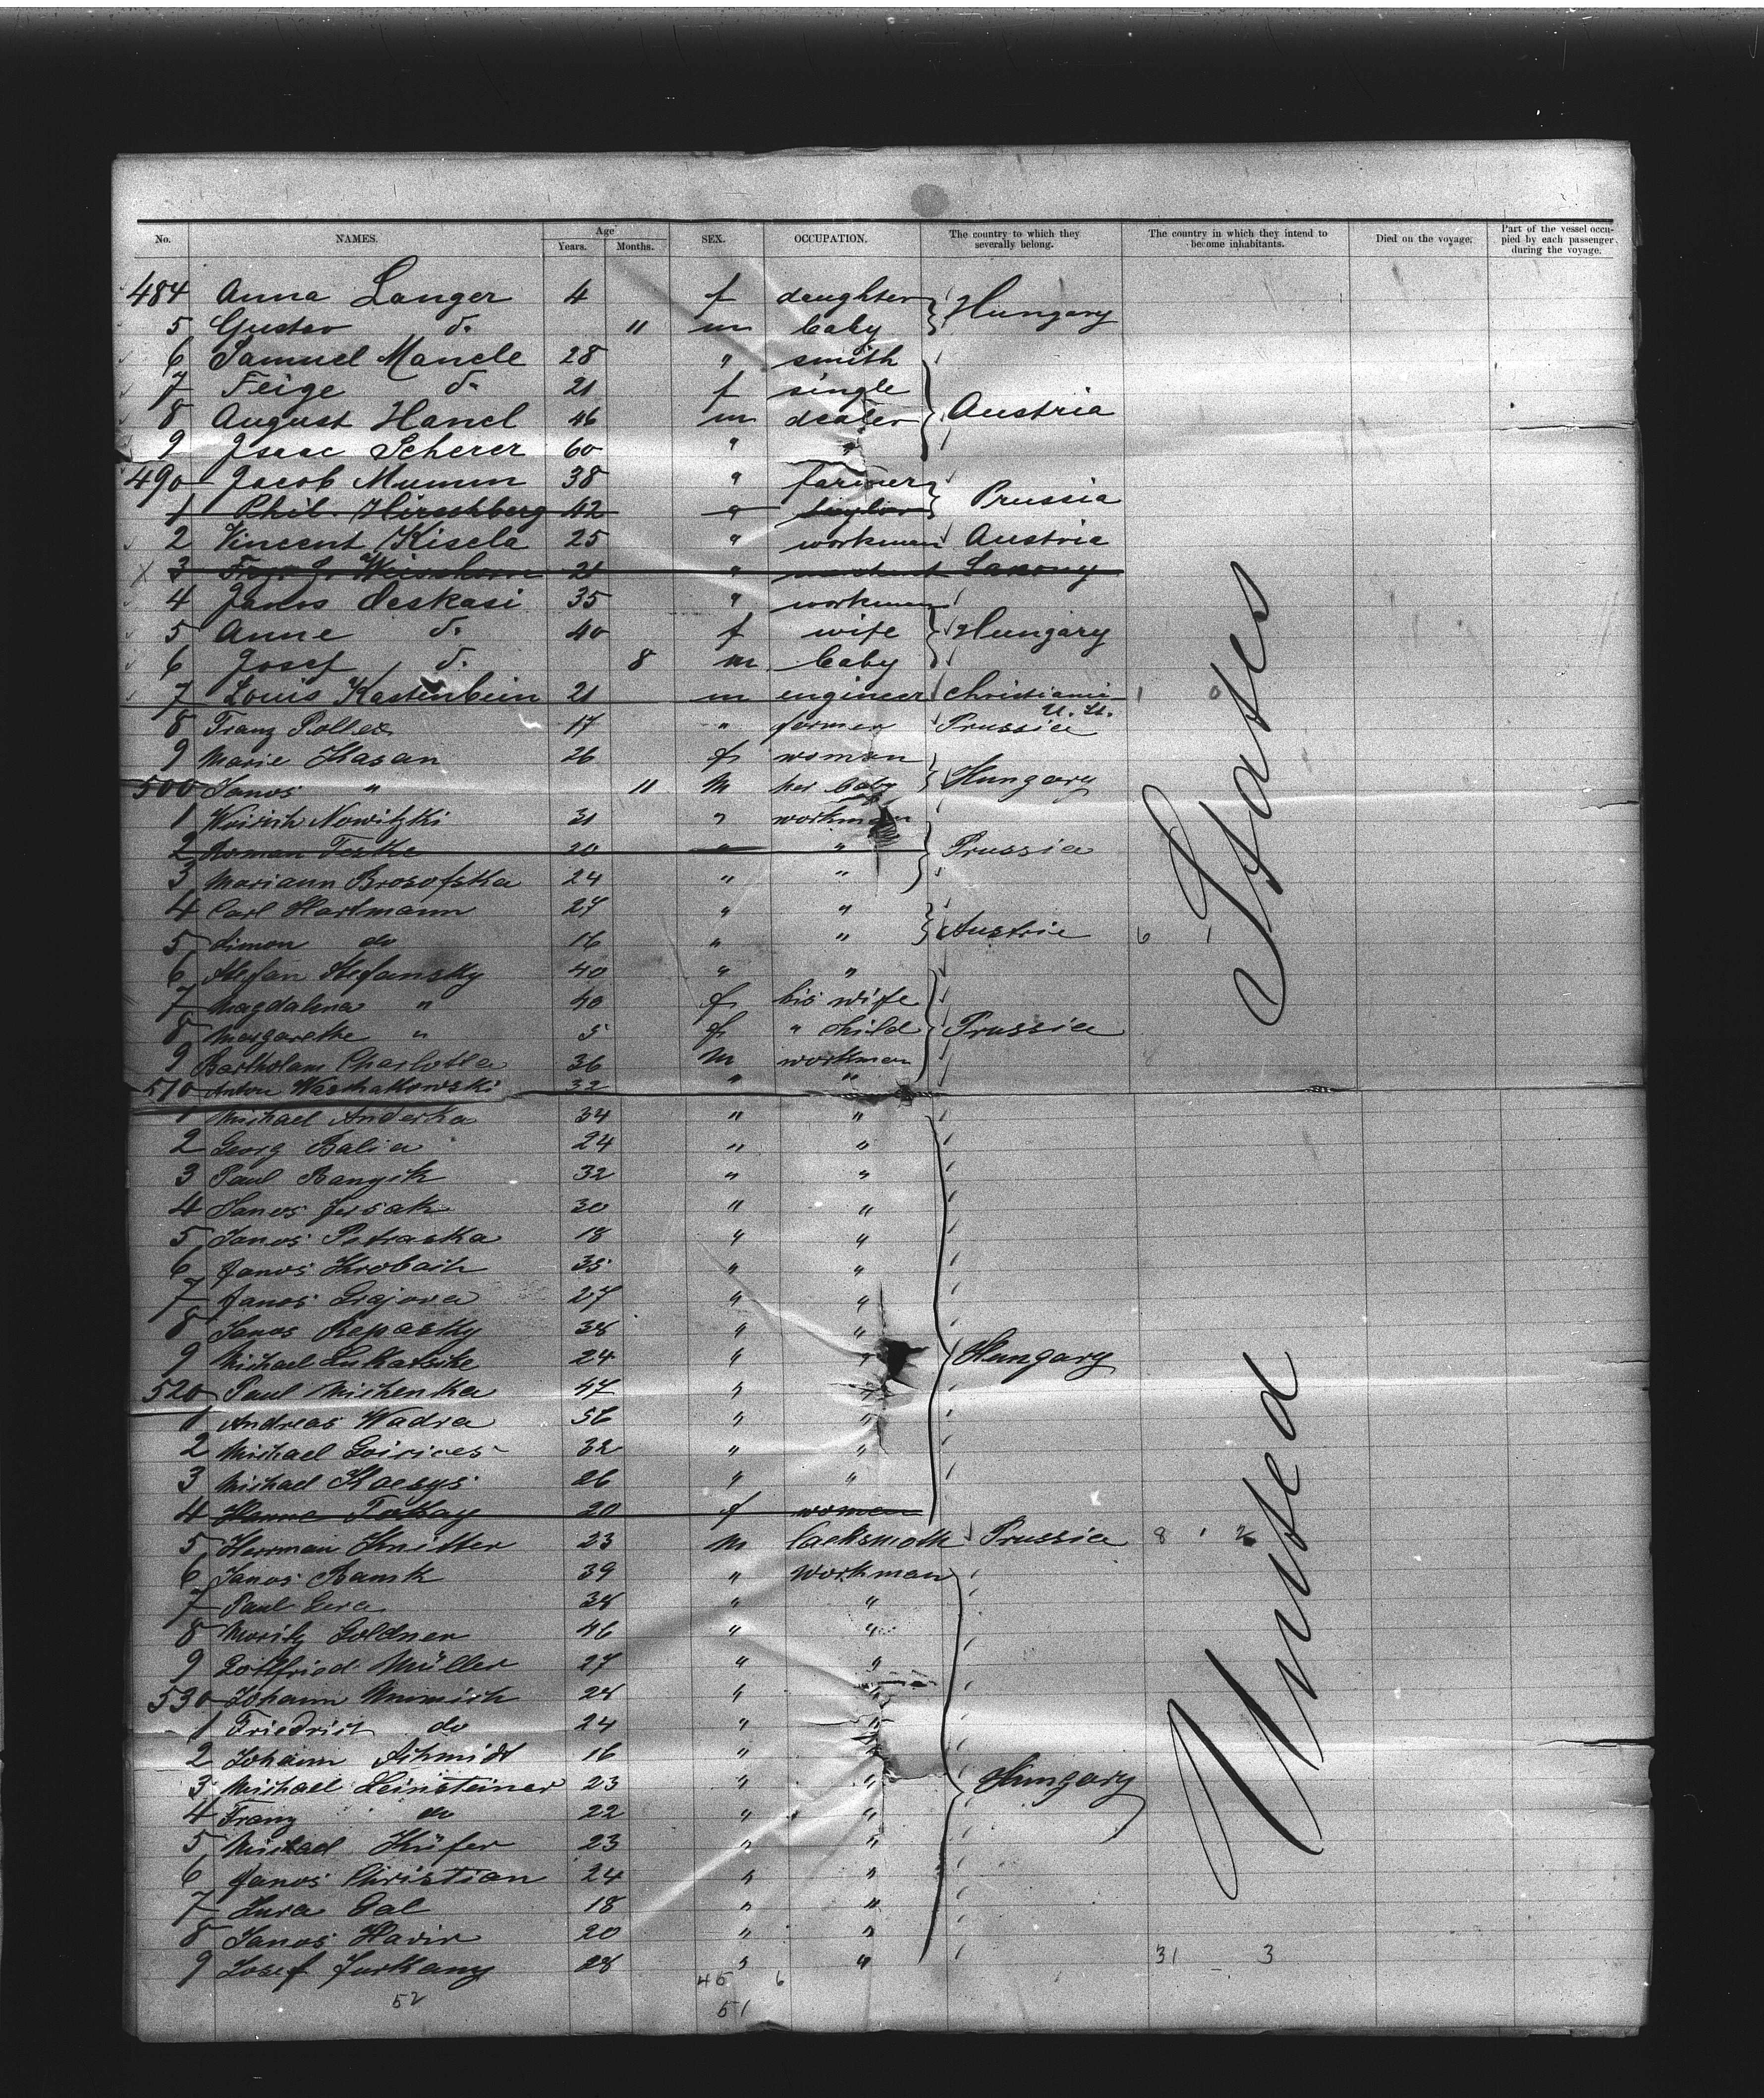 No. NAMES. Age Years. Months. SEX. OCCUPATION. The country to which they severally belong. The country in which they intend to become inhabitants. Died on the voyage. Part of the vessel occupied by each passenger during the voyage.
484 Anna Langer 4 f daughter Hungary
5 Gustav d. 11 m baby
6 Samuel Mancle 28 " smith
7 Feige d. 21 f single
8 August Hancl 46 m dealer Austria
9 Isaac Scherer 60 " "
490 Jacob Mumm 38 " farmer Prussia
1 Phil. Hirschberg 42 "
2 Vincent Kisela 25 " workman Austria
3 21 " Saxony
4 Janos Seskasi 35 " workman
5 Anne d. 40 f wife Hungary
6 Josef d. 8 m baby
7 Louis Kastenbein 21 m engineer Christiania
8 Franz Pollex 17 " farmer Prussia
9 Marie Kasan 26 f woman
500 Janos " 11 M her baby Hungary
1 Nowitzki 31 " workman
2 Roman Teske 20 " " Prussia
3 Mariann Brosofska 24 " "
4 Carl Hartmann 27 " "
5 Simon do 16 " " Austria 6 1
6 Stefan Stefansky 40 " "
7 Magdalena " 40 f his wife
8 Margarethe " 5 f " child Prussia
9 Bartholam Charlotta 36 M workman
510 Anton Waschakowski 32 " "
1 Michael Anderka 34 " "
2 Georg Balia 24 " "
3 Paul Rangik 32 " "
4 Janos Jersak 30 " "
5 Janos Petraska 18 " "
6 Janos Hrobath 35 " "
7 Janos Grajova 27 " "
8 Janos Repasky 38 " "
9 Michael 24 " " Hungary
520 Paul Michenka 47 " "
1 Andreas Wadra 56 " "
2 Michael 32 " "
3 Michael Kocsys 26 " "
4 Hanne Tokay 20 f woman
5 Herrman Knitter 23 M locksmoth Prussia 8 1 2
6 Janos 39 " workman
7 Paul Gera 38 " "
8 Moritz Goldner 46 " "
9 Gottfried Müller 27 " "
530 Johann 28 " "
1 Friedrich do 24 " "
2 Johann Schmidt 16 " "
3 Michael Leinsteiner 23 " " Hungary
4 Franz do 22 " "
5 Michael Küfer 23 " "
6 Janos Christian 24 " "
7 Jura Gal 18 " "
8 Janos Havir 20 " "
9 Josef Jurkany 28 " " 31 3
45 6
52 51
United States